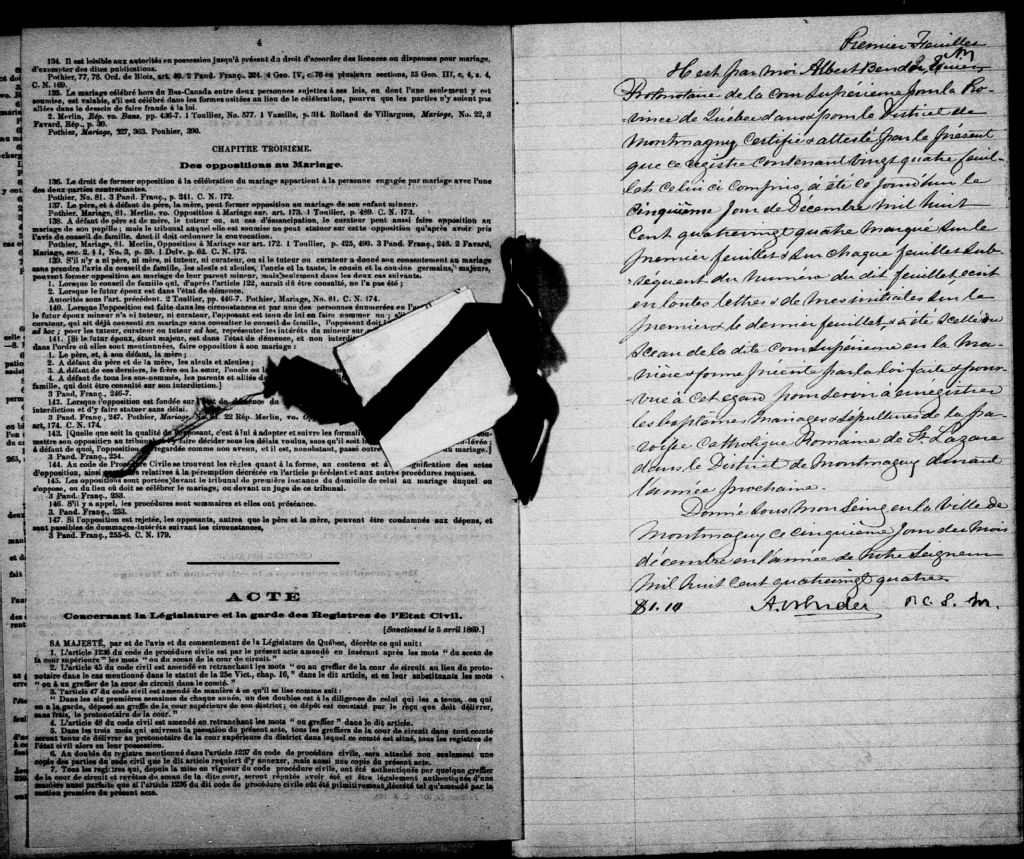 4
134. Il est loisible aux autorités en possession jusqu'à présent du droit d'accorder des licences ou dispenses pour mariage,
d'exempter des dites publications.
Pothier, 77, 78. Ord. de Blois, art. 40. 2 Pand. Franç. 324. 4 Geo. IV, c. 76 en plusieurs sections, 35 Geo. III, c, 4, s. 4,
C. N. 169.
135. Le mariage célébré hors du Bas-Canada entre deux personnes sujettes à ses lois, ou dont l'une seulement y est
soumise, est valable, s'il est célébré dans les formes usitées au lieu de la célébration, pourvu que les parties n'y soient pas
allées dans le dessein de faire fraude à la loi.
2. Merlin, Rép. vo. Bans. pp. 436-7. 1 Toullier, No. 577. 1 Vazeille, p. 314. Rolland de Villargues, Mariage, No. 22, 3
Favard, Rép., p. 36.
Pothier, Mariage, 327, 363. Pothier, 390.
CHAPITRE TROISIÈME.
Des oppositions au Mariage.
136. Le droit de former opposition à la célébration du mariage appartient à la personne engagée par mariage avec l'une
des deux parties contractantes.
Pothier, No. 81. 3 Pand. Franç., p. 241. C. N. 172.
137. Le père, et à défaut du père, la mère, peut former opposition au mariage de son enfant mineur.
Pothier, Mariage, 81. Merlin, vo. Opposition à Mariage sur. art. 173. 1 Toullier, p. 489. C. N. 173.
138. A défaut de père et de mère, le tuteur ou, au cas d'émancipation, le curateur peut aussi faire opposition au
mariage de son pupille; mais le tribunal auquel elle est soumise ne peut statuer sur cette opposition qu'après avoir pris
l'avis du conseil de famille, dont il doit ordonner la convocation.
Pothier, Mariage, 81. Merlin, Opposition à Mariage sur art. 172. 1 Toullier, p. 425, 490. 3 Pand. Franç., 248. 2 Favard,
Mariage, sec. 2, § 1, No. 3, p. 59. 1 Delv. p. 62. C. N. 175.
139. S'il n'y a ni père, ni mère, ni tuteur, ni curateur, ou si le tuteur ou curateur a donné son consentement au mariage
sans prendre l'avis du conseil de famille, les aïeuls et aïeules, l'oncle et la tante, le cousin et la cousine germains, majeurs,
peuvent former opposition au mariage de leur parent mineur, mais seulement dans les deux cas suivants:
1. Lorsque le conseil de famille qui, d'après l'article 122, aurait dû être consulté, ne l'a pas été;
2. Lorsque le futur époux est dans l'état de démence.
Autorités sous l'art. précédent. 2 Toullier, pp. 446-7. Pothier, Mariage, No. 81. C. N. 174.
140. Lorsque l'opposition est faite dans les circonstances et par une des personnes énumérées en l'art
le futur époux mineur n'a ni tuteur, ni curateur, l'opposant est tenu de lui en faire nommer un; s'il
curateur, qui ait déjà consenti au mariage sans consulter le conseil de famille, l'opposant doit
ad hoc; pour les tuteur, curateur ou tuteur ad hoc, représenter les intérêts du mineur sur
141. [Si le futur époux, étant majeur, est dans l'état de démence, et non interdit
dans l'ordre où elles sont mentionnées, faire opposition à son mariage:
1. Le père, et, à son défaut, la mère;
2. A défaut du père et de la mère, les aïeuls et aïeules;
3. A défaut de ces derniers, le frère ou la sœur, l'oncle
4. A défaut de tous les sus-nommés, les parents et alliés
famille, qui doit être consulté sur son interdiction.]
3 Pand. Franç., 246-7.
142. Lorsque l'opposition est fondée sur l'état de démence du
interdiction et d'y faire statuer sans délai.
3 Pand. Franç., 247. Pothier, Mariage, 22 Rép. Merlin, vo. Op
art, 174. C. N. 174.
143. [Quelle que soit la qualité de l'opposant, c'est à lui à adopter et suivre les formalités
mettre son opposition au tribunal et l'y faire décider sous les délais voulus, sans qu'il soit
à défaut de quoi, l'opposition est regardée comme non avenue, et il est, nonobstant, passé outre au mariage.]
3 Pand. Franç. 254.
144. Au code de Procédure Civile se trouvent les règles quant à la forme, au contenu et à la signification des actes
d'opposition, ainsi que relatives à la péremption décrétée en l'article précédent et aux autres procédures requises.
145. Les oppositions sont portées devant le tribunal de première instance du domicile de celui au mariage duquel on
s'oppose, ou du lieu où doit se célébrer le mariage, ou devant un juge de ce tribunal.
3 Pand. Franç., 253.
146. S'il y a appel, les procédures sont sommaires et elles ont préséance.
3. Pand. Franç., 253.
147. Si l'opposition est rejetée, les opposants, autres que le père et la mère, peuvent être condamnés aux dépens, et
sont passibles de dommages-intérêts suivant les circonstances.
3 Pand. Franç., 255-6. C. N. 179.
ACTE
Concernant la Législature et la garde des Registres de l'Etat Civil.
[Sanctionné le 5 avril 1869.]
SA MAJESTÉ, par et de l'avis et du consentement de la Législature de Québec, décrète ce qui suit:
1. L'article 1236 du code de procédure civile est par le présent acte amendé en insérant après les mots "du sceau de
la cour supérieure" les mots "ou du sceau de la cour de circuit."
2. L'article 45 du code civil est amendé en retranchant les mots "ou au greffier de la cour de circuit au lieu du proto-
notaire dans le cas mentionné dans le statut de la 25e Vict., chap. 16," dans le dit article, et en leur substituants les mots
"ou à un greffier de la cour de circuit dans le comté."
3. l'article 47 du code civil est amendé de manière à ce qu'il se lise comme suit:
"Dans les six premières semaines de chaque année, un des doubles est à la diligence de celui qui les a tenus, ou qui
en a la garde, déposé au greffe de la cour supérieure de son district; ce dépôt est constaté par le reçu que doit délivrer,
sans frais, le protonotaire de la cour."
4. L'article 48 du code civil est amendé en retranchant les mots "ou greffier" dans le dit article.
5. Dans les trois mois qui suivront la passation du présent acte, tous les greffiers de la cour de circuit dans tout comté
seront tenus de délivrer au protonotaire de la cour supérieure du district dans lequel ce comté est situé, tous les registres de
l'état civil alors en leur possession.
6. Au double du registre mentionné dans l'article 1237 du code de procédure civile, sera attaché non seulement une
copie des parties du code civil que le dit article requiert d'y annexer, mais aussi une copie du présent acte.
7. Tous les registres qui, depuis la mise en vigueur du code de procédure civile, ont été authentiqués par quelque greffier
de la cour de circuit et revêtus du sceau de la dite cour, seront réputés avoir été et être légalement authentiqués d'une
manière aussi parfaite que si l'article 1236 du dit code de procédure civile eût été primitivement décrété tel qu'amendé par la
section première du présent acte.
Premier Feuillet
Il est par moi Albert Bender Ecuier
Protonotaire de la Cour Supérieure pour la Pro-
vince de Québec dans & pour le District de
Montmagny Certifié & attesté par le présent
que ce registre contenant vingt quatre feuil-
lets celui ci compris, a été ce jourd'hui le
Cinquième jour de Décembre mil huit
cent quatrevingt quatre marqué sur le
premier feuillet & sur chaque feuillet sub-
séquent du numéro du dit feuillet, écrit
en toutes lettres & de mes initiales sur le
premier & le dernier feuillet & a été scellé du
Sceau de la dite Cour Supérieure en la ma-
nière & forme précrite par la loi faite & pour-
vue à cet égard pour servir à enrégistrer
les baptêmes Mariages & Sépultures de la pa-
roisse Catholique Romaine de St. Lazare
dans le District de Montmagny durant
l'année prochaine.
Donné sous mon Seing en la Ville de
Montmagny ce cinquième jour du mois
décembre en l'année de Notre Seigneur
mil huit cent quatrevingt quatre
$1.10 A. Bender P. C. S. M.